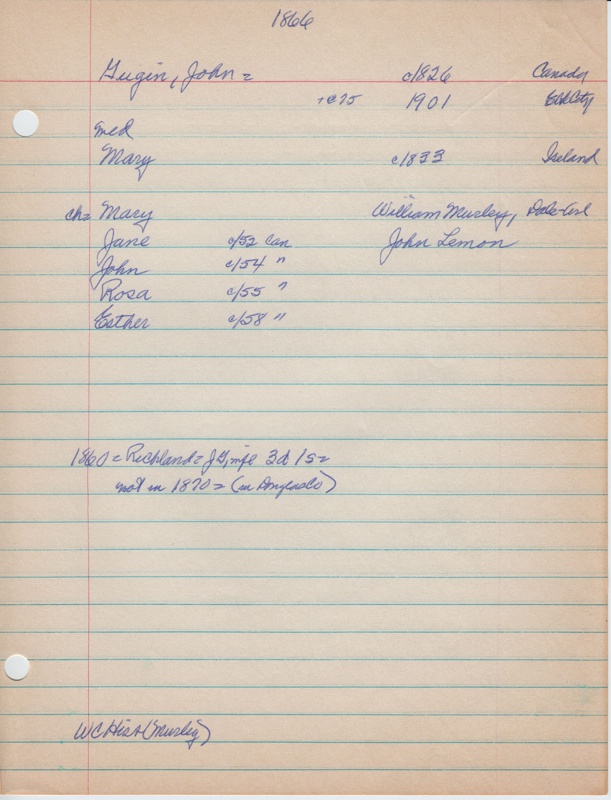 1866
Gugin, John = c/1826 Canada
+c75 1901 Elk City
med
Mary c/1833 Ireland
ch= Mary William Musley, Dale-
Jane c/52 Can John Lemon
John c/54 "
Rosa c/55 "
Esther c/58 "
1860 = Richland = J G, wife 3d 1s =
not in 1870 = (in Douglas Co)
WC Hist (Musley)